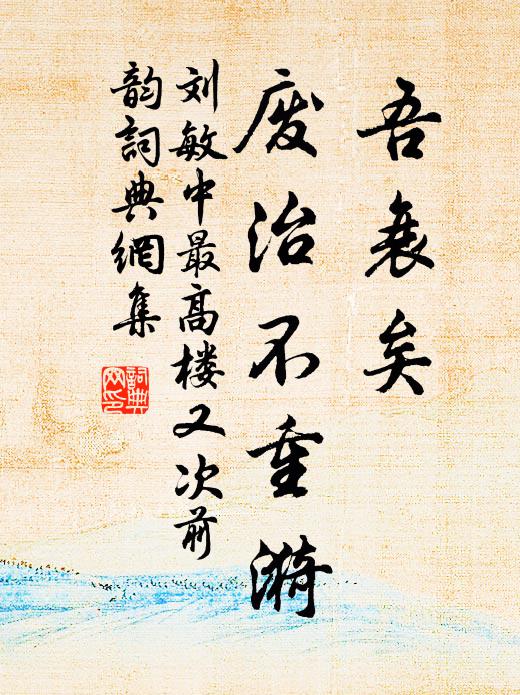 吾衰矣
废治不重漪
刘敏中最高楼又次前
韵詞典網集
詞典
网印